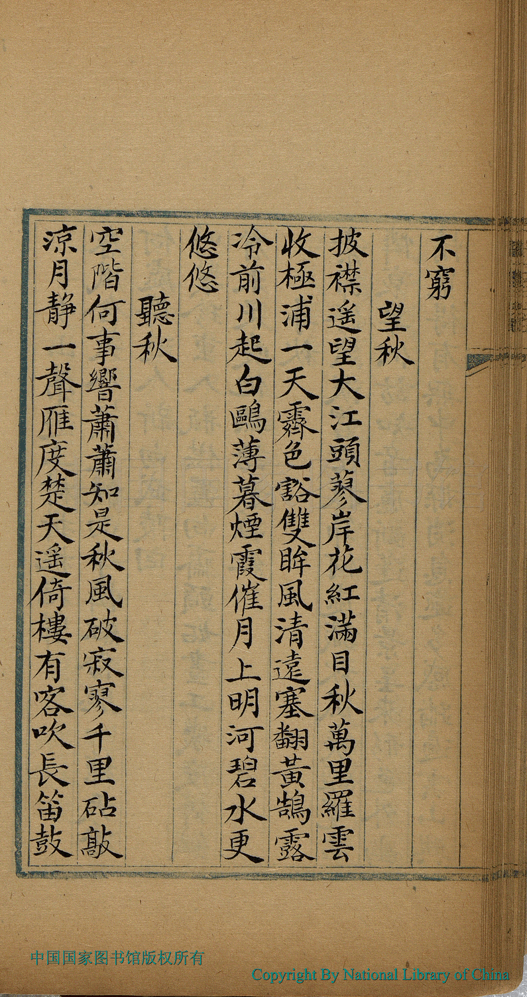 不窮
望秋
披襟遥望大江頭蓼岸花紅滿目秋萬里羅雲
收極浦一天霽色豁雙眸風清遠塞翻黃鵠露
冷前川起白鷗薄暮煙霞催月上明河碧水更
悠悠
聽秋
空階何事響蕭蕭知是秋風破寂寥千里砧敲
凉月静一聲雁度楚天遥倚樓有客吹長笛鼓
中国国家图书馆版权所有
Copyright By National Library of China